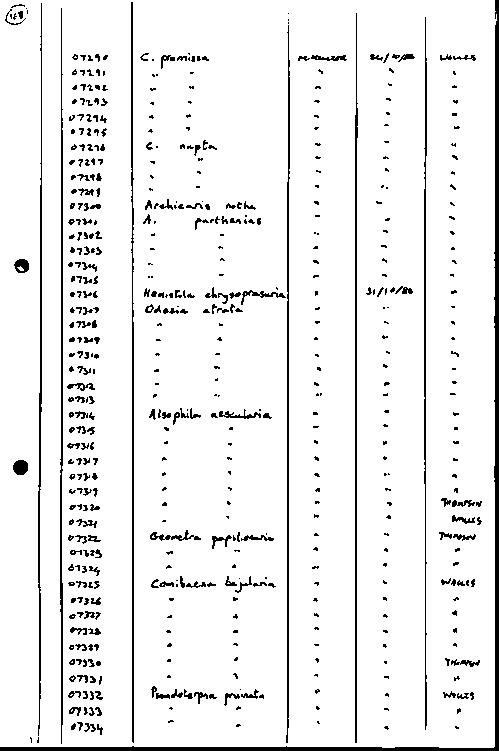 07290 C. promissa 24/10/86 WALLIS
07291 " " " " "
07292 " " " " "
07293 " " " " "
07294 " " " " "
07295 " " " " "
07296 C. nupta " " "
07297 " " " " "
07298 " " " " "
07299 " " " " "
07300 Archiearis notha " " "
07301 A. parthenias " " "
07302 " " " " "
07303 " " " " "
07304 " " " " "
07305 " " " " "
07306 Hemistola chrysoprasaria " 31/10/86 "
07307 Odezia atrata " " "
07308 " " " " "
07309 " " " " "
07310 " " " " "
07311 " " " " "
07312 " " " " "
07313 " " " " "
07314 Alsophila aescularia " " "
07315 " " " " "
07316 " " " " "
07317 " " " " "
07318 " " " " "
07319 " " " " "
07320 " " " " THOMPSON
07321 " " " " WALLIS
07322 Geometra papilionaria " " THOMPSON
07323 " " " " "
07324 " " " " "
07325 Comibaena bajularia " " WALLIS
07326 " " " " "
07327 " " " " "
07328 " " " " "
07329 " " " " "
07330 " " " " THOMPSON
07331 " " " " "
07332 Pseudoterpna pruinata " " WALLIS
07333 " " " " "
07334 " " " " "